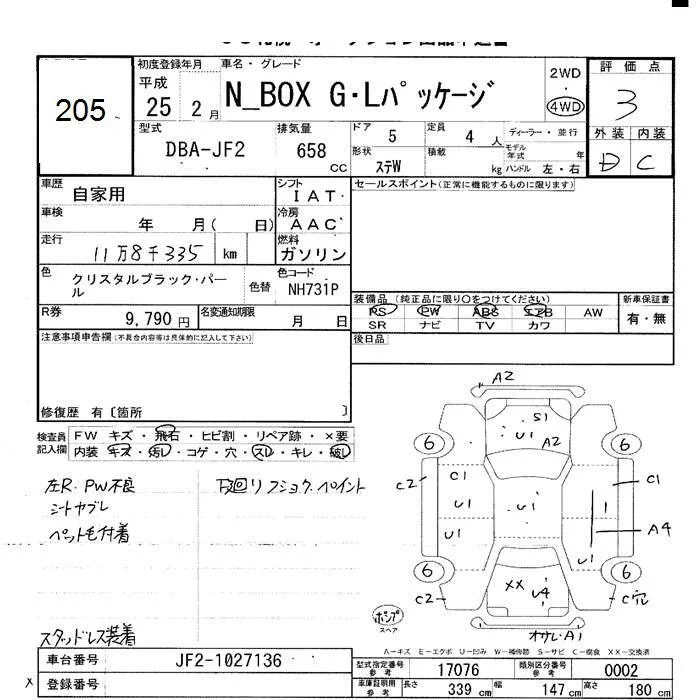 205
初度登録年月
平成
25 2 月
車名・グレード
N_BOX G・Lパッケージ
2WD
4WD
評価点
3
外装 内装
D C
型式
DBA-JF2
排気量
658 CC
ドア 5
定員 4 人
ディーラー・並行
モデル年式 年
形状 ステW
積載 kg
ハンドル 左・右
車歴
自家用
車検
年 月( 日)
走行
11万8千335 km
色
クリスタルブラック・パール
色替
シフト
IAT
冷房
AAC
燃料
ガソリン
色コード
NH731P
R券
9,790 円
名変通知期限
月 日
セールスポイント(正常に機能するものに限ります)
装備品 (純正品に限り○をつけてください)
PS PW ABS エアB AW
SR ナビ TV カワ
新車保証書
有・無
後日品
注意事項申告欄(不具合内容等は具体的に記入して下さい)
修復歴 有〔箇所 〕
検査員記入欄
FW キズ・飛石・ヒビ割・リペア跡・×要
内装 キズ・汚レ・コゲ・穴・スレ・キレ・破レ
左R.PW不良
シートヤブレ
ペット毛付着
スタッドレス装着
下廻リ
ペイント
A2
S1
U1
A2
6 6
C2 C1 C1
U1 U1 1
U1 A4
U1
6 6
C2 XX U4 C穴
ポンプ
スペア
オサレ・A1
A-キズ E-エクボ U-凹み W-補修跡 S-サビ C-腐食 XX-交換
車台番号
JF2-1027136
登録番号
x
型式指定番号 参考
17076
類別区分番号 参考
0002
車庫証明用 参考
長さ 339 cm
幅 147 cm
高さ 180 cm